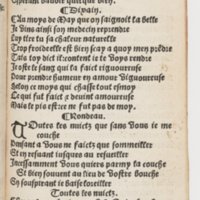 ¶ Dixain.
AU moys de May que on saignoit la belle
Je vins ainsi son medecin reprendre
Luy tire tu sa chaleur naturelle
Trop froide elle est bien scay a quoy men prẽdre
Tais toy dict il content ie te voys rendre
Ie oste le sang qui la faict rigoureuse
Pour prendre humeur en amour vigoureuse
Selon ce moys qui chasse tout esmoy
Ce qui fut faict & deuint amoureuse
Mais le pis est: ce ne fut pas de moy.
¶ Rondeau.
TOutes les nuictz que sans vous ie me
couche
Pensant a Vous ne faictz que sommeiller
Et en resuant iusques au resueiller
Incessamment Vous quiers parmy la couche
Et bien souuent au lieu de Vostre bouche
En souspirant ie baise loreiller
Toutes les nuictz.